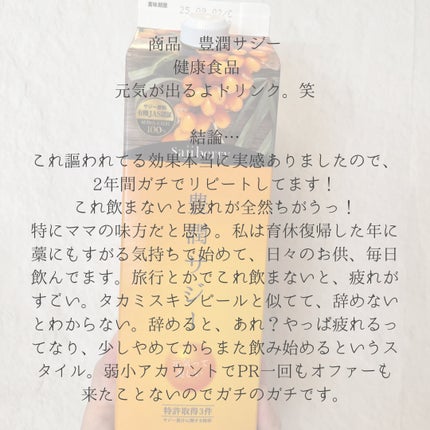 賞味期限
25.09.02/C
商品　豊潤サジー
健康食品
元気が出るよドリンク。笑
サジー原液
有機JAS認証
100%
Saji
結論…
これ謳われてる効果本当に実感ありましたので、
2年間ガチでリピートしてます！
これ飲まないと疲れが全然ちがうっ！
特にママの味方だと思う。私は育休復帰した年に
藁にもすがる気持ちで始めて、日々のお供、毎日
飲んでます。旅行とかでこれ飲まないと、疲れが
すごい。タカミスキンピールと似てて、辞めない
とわからない。辞めると、あれ？やっぱ疲れるっ
てなり、少しやめてからまた飲み始めるというス
タイル。弱小アカウントでPR一回もオファーも
来たことないのでガチのガチです。
豊潤サジー
特許取得3件